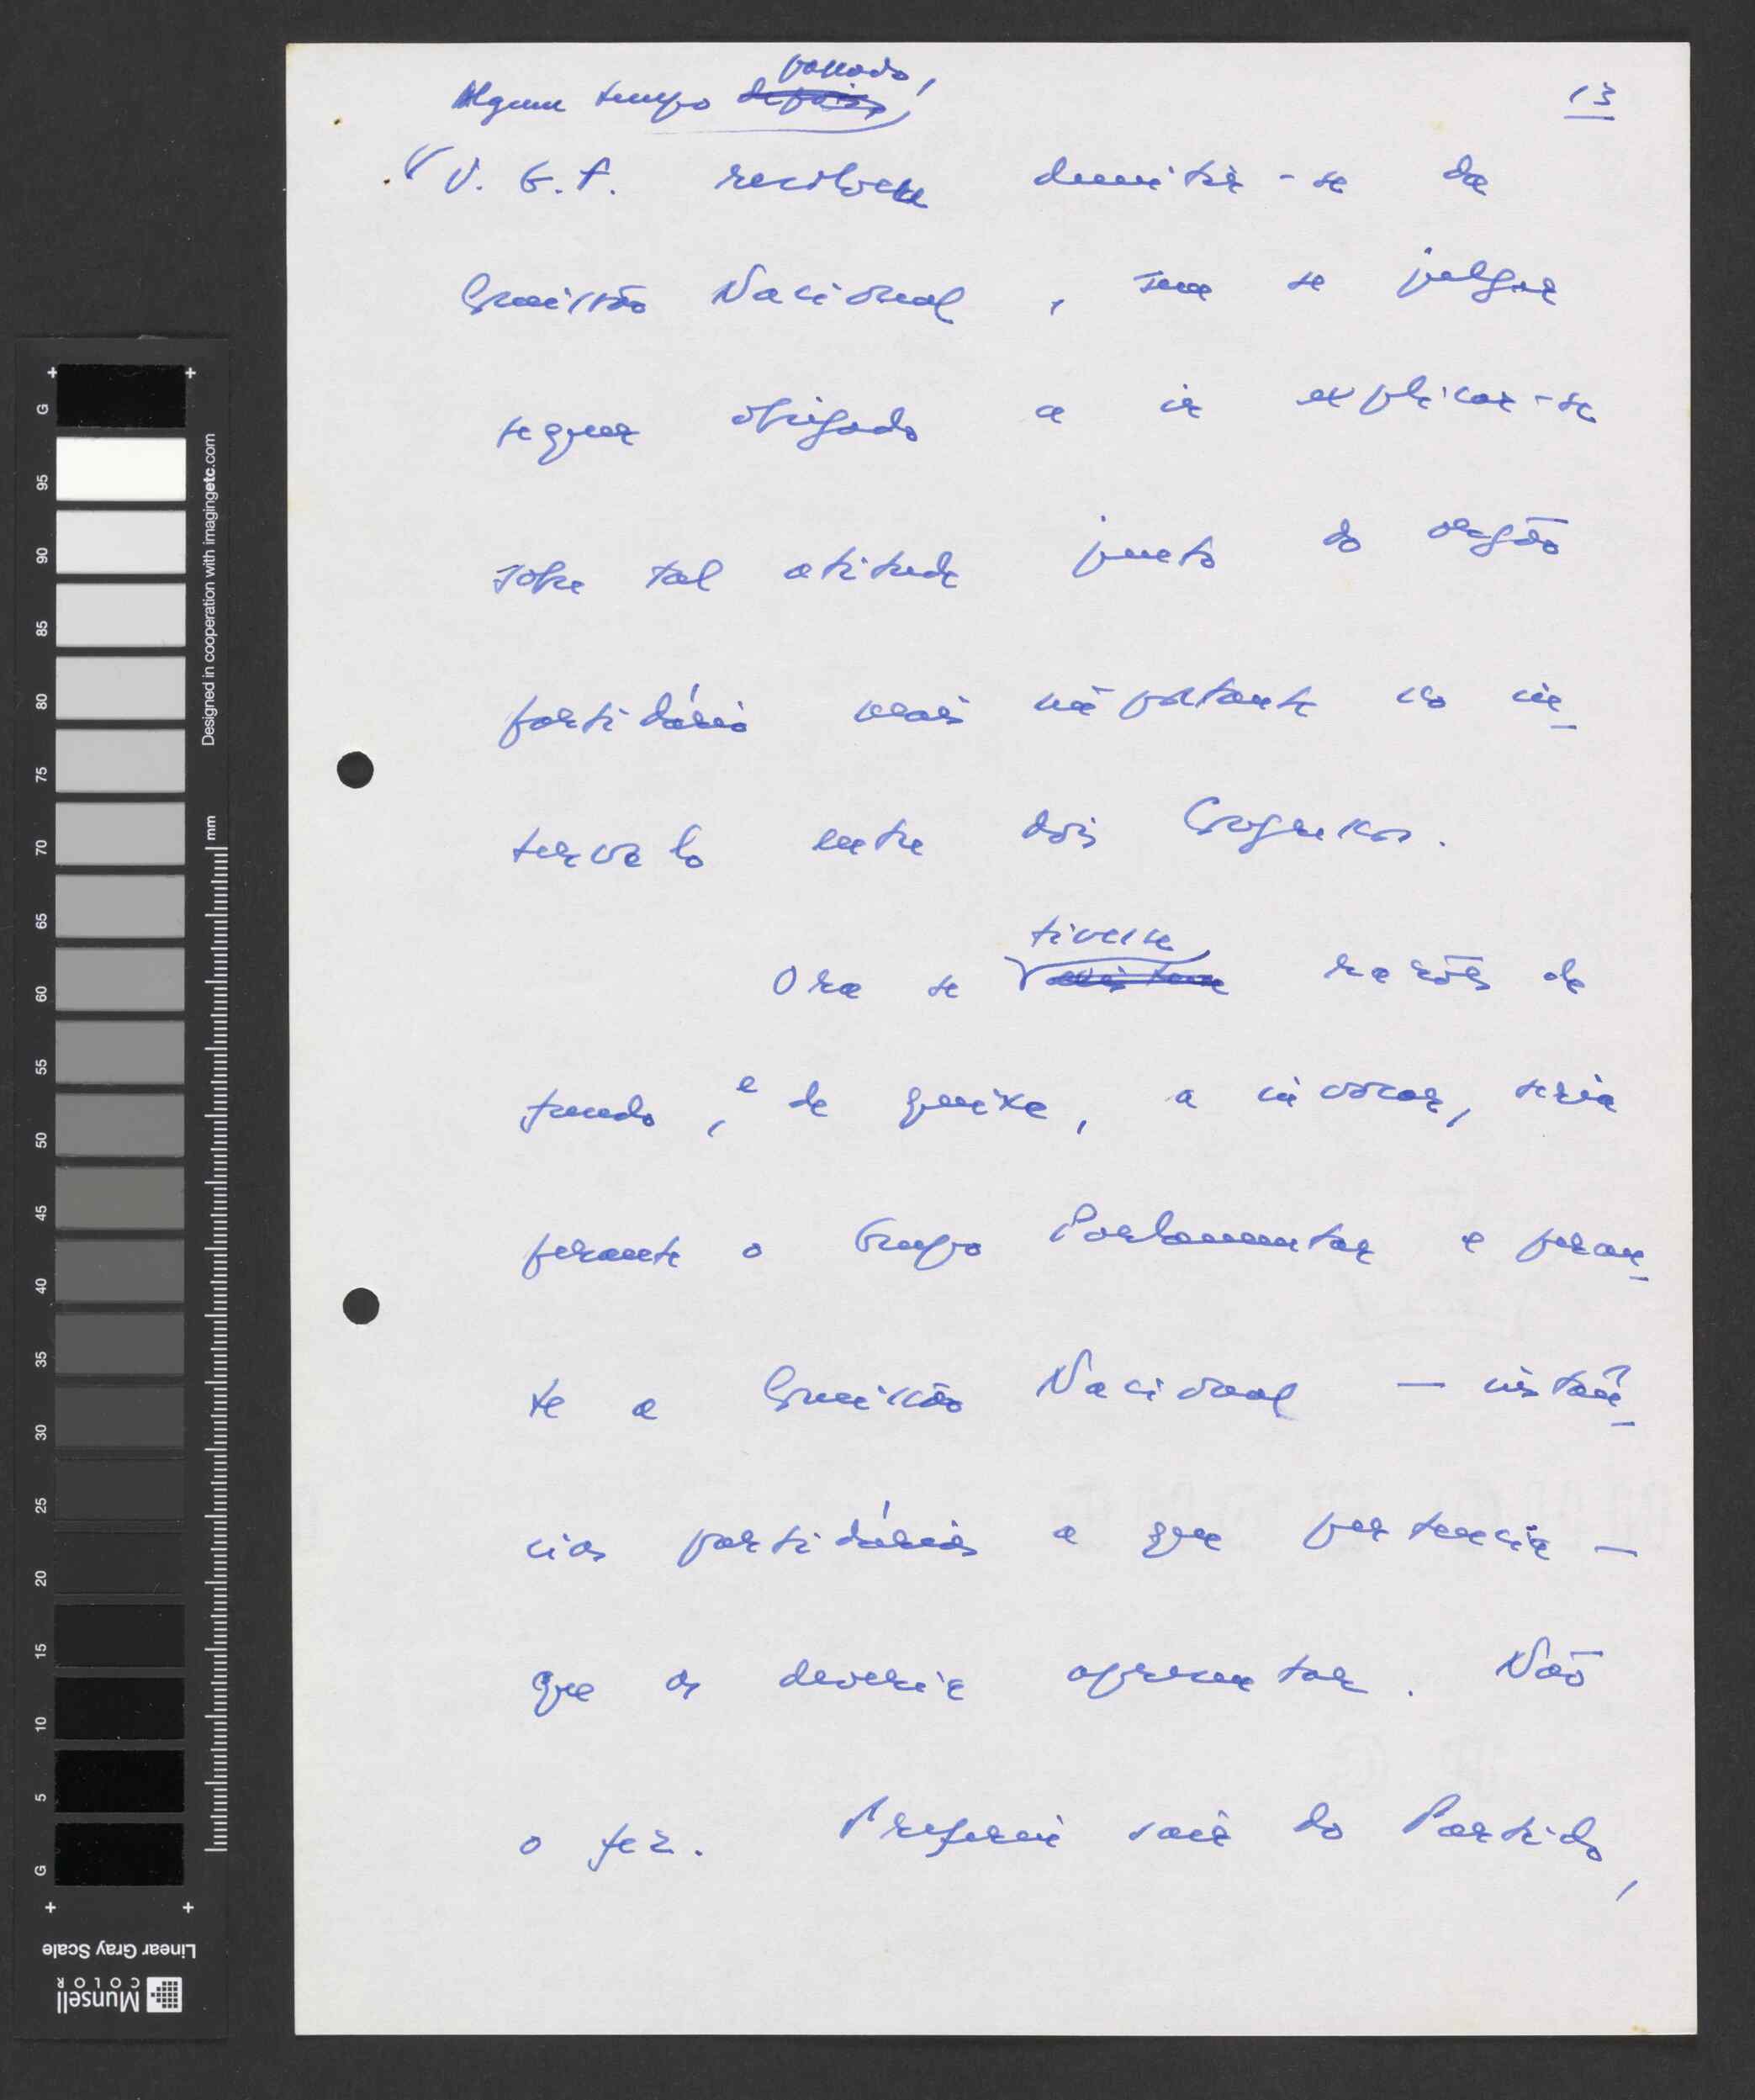 13
passado,
Algum tempo depois,
V. G. F. resolveu demitir-se da
Comissão Nacional, sem se julgar
sequer obrigado a ir explicar-se
sobre tal atitude junto do orgão
partidário mais importante no in-
tervalo entre dois Congressos.
tivesse
Ora se existem razões de
fundo, e de queixa, a invocar, seria
perante o Grupo Parlamentar e peran-
te a Comissão Nacional — instân-
cias partidárias a que pertencia —
que as deveria apresentar. Não
o fez. Preferiu sair do Partido,
G 95 90 85 80 75 70 65 60 55 50 45 40 35 30 25 20 15 10 5 G
Designed in cooperation with imagingetc.com
mm
Linear Gray Scale
Munsell
COLOR